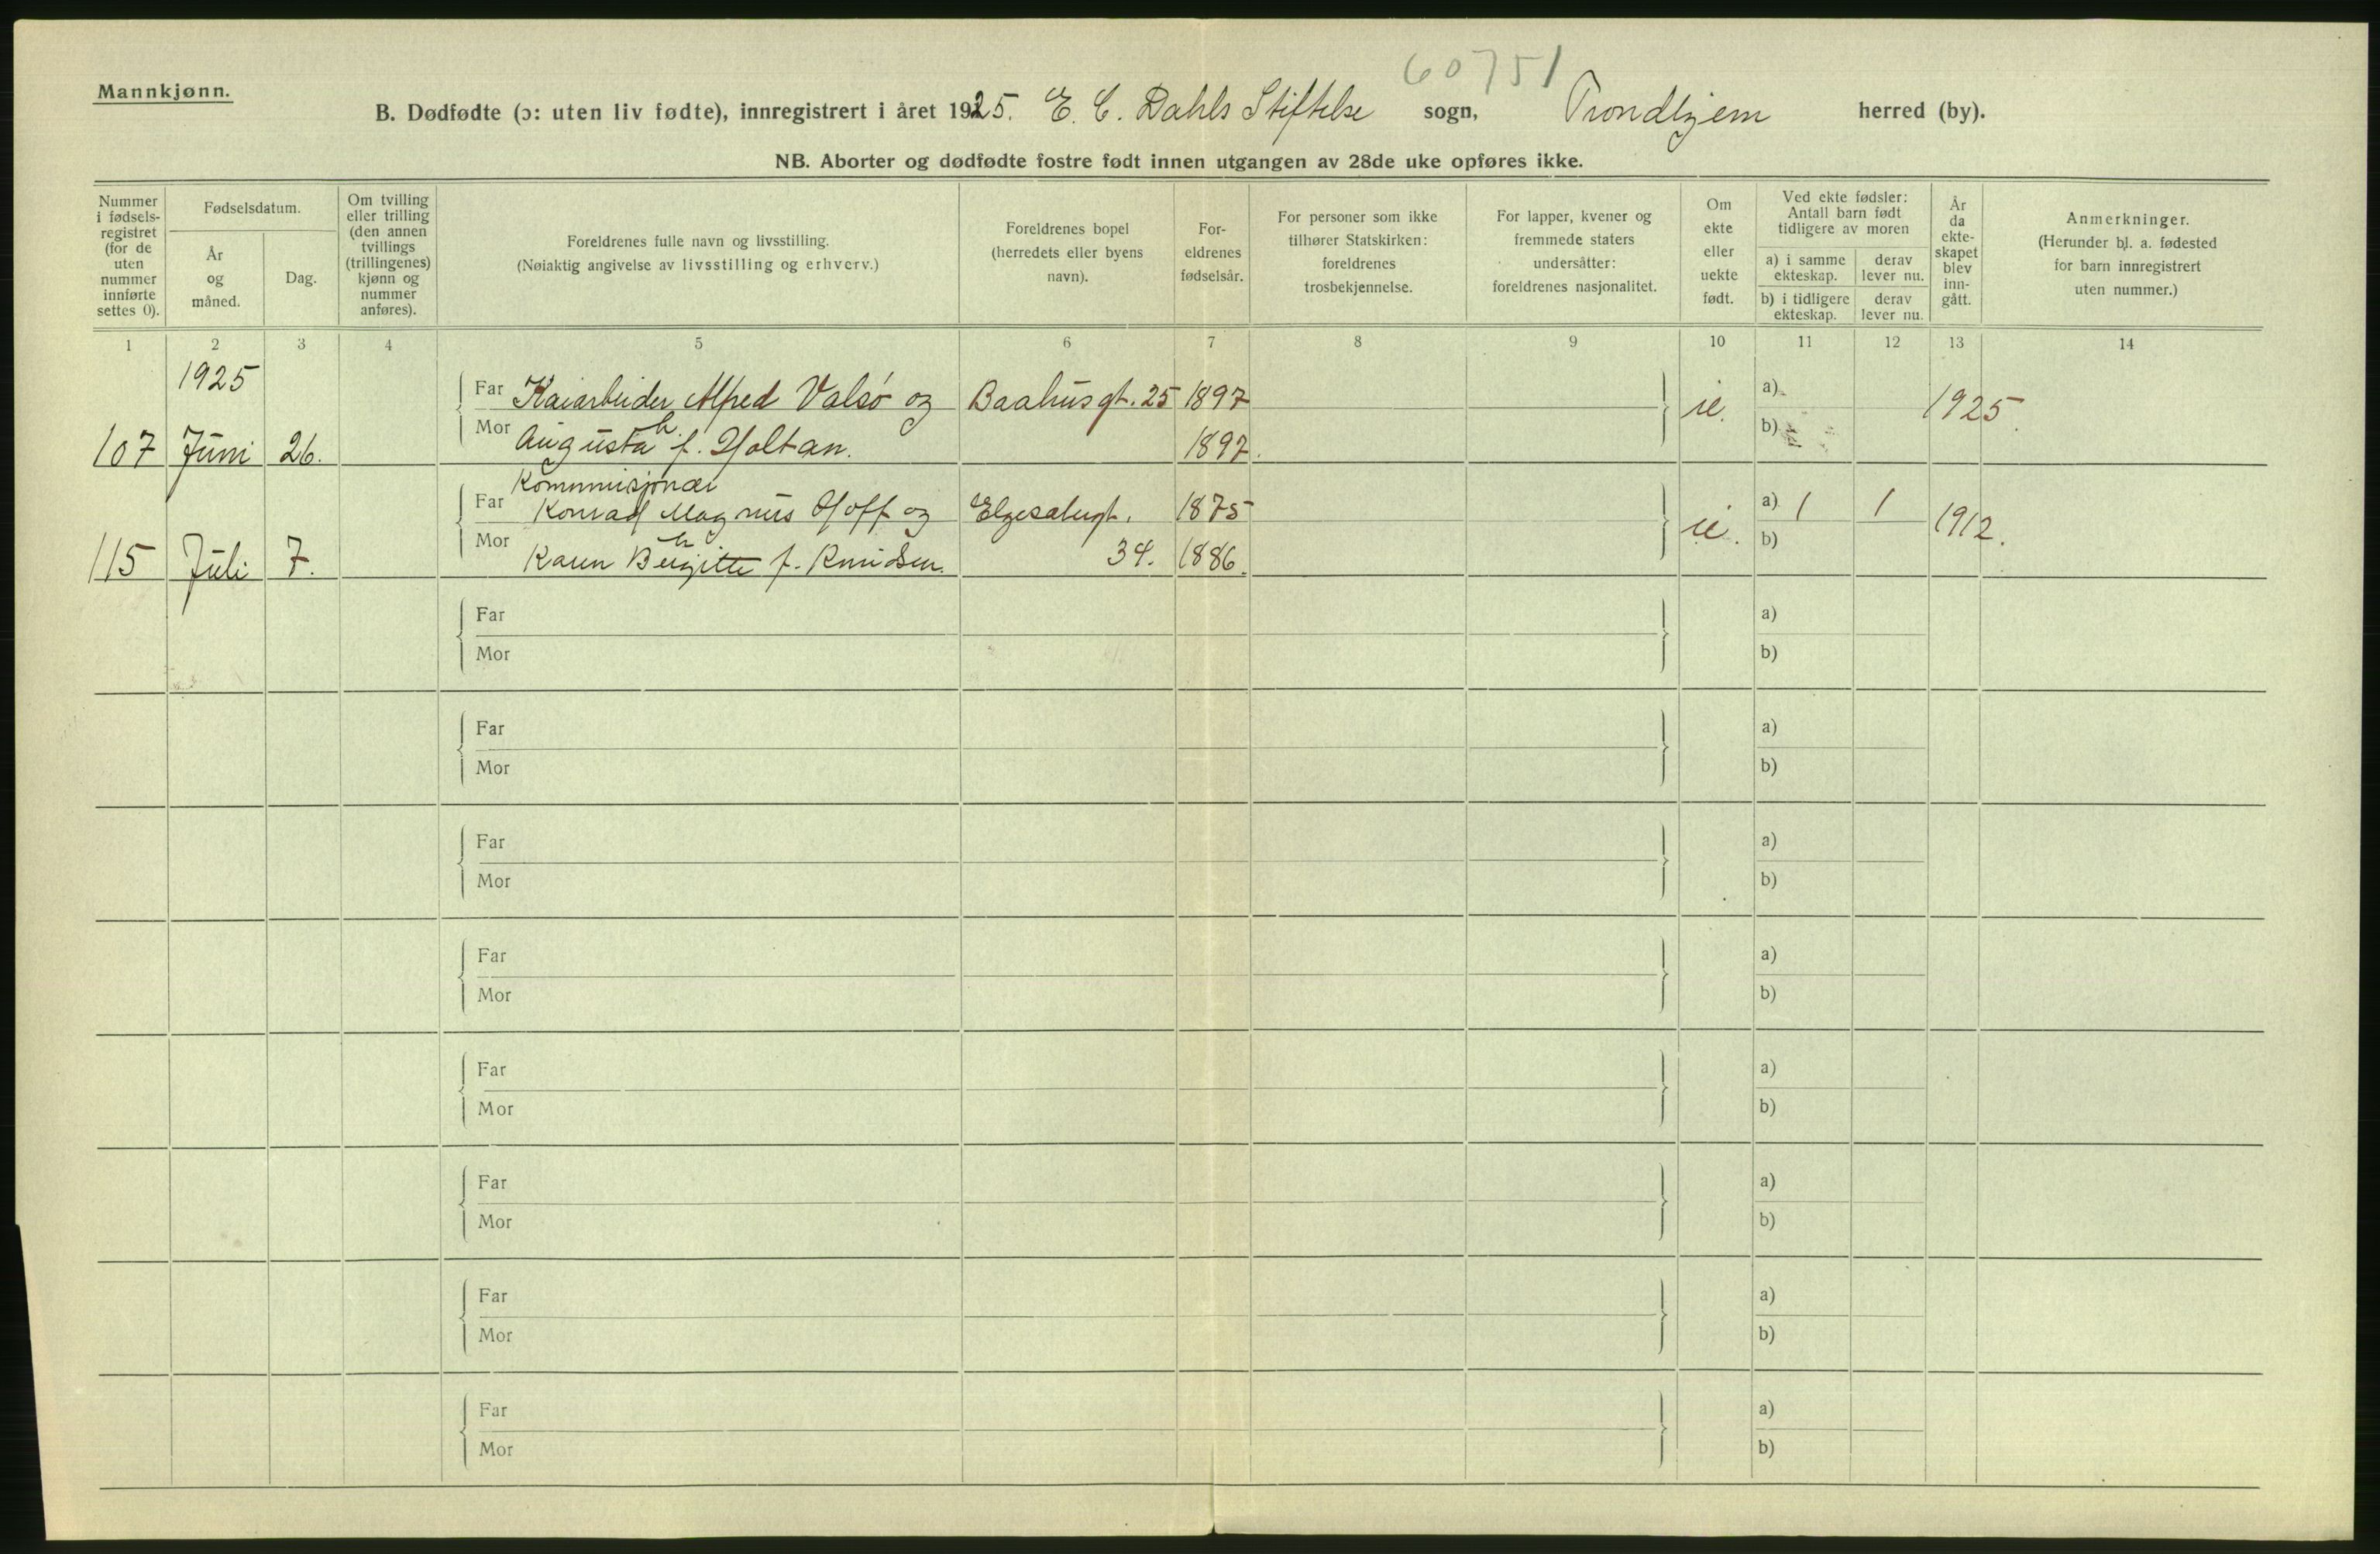 60751
Mannkjønn.
B. Dødfødte (ɔ: uten liv fødte), innregistrert i året 1925. E. C. Dahls Stiftelse sogn, Trondhjem herred (by).
NB. Aborter og dødfødte fostre født innen utgangen av 28de uke opføres ikke.
Nummer
i fødsels-
registret
(for de
uten
nummer
innførte
settes 0).
Fødselsdatum.
År
og
måned.
Dag.
Om tvilling
eller trilling
(den annen
tvillings
(trillingenes)
kjønn og
nummer
anføres).
Foreldrenes fulle navn og livsstilling.
(Nøiaktig angivelse av livsstilling og erhverv.)
Foreldrenes bopel
(herredets eller byens
navn).
For-
eldrenes
fødselsår.
For personer som ikke
tilhører Statskirken:
foreldrenes
trosbekjennelse.
For lapper, kvener og
fremmede staters
undersåtter:
foreldrenes nasjonalitet.
Om
ekte
eller
uekte
født.
Ved ekte fødsler:
Antall barn født
tidligere av moren
a) i samme
ekteskap.
derav
lever nu.
b) i tidligere
ekteskap.
derav
lever nu.
År
da
ekte-
skapet
blev
inn-
gått.
Anmerkninger.
(Herunder bl. a. fødested
for barn innregistrert
uten nummer.)
1 2 3 4 5 6 7 8 9 10 11 12 13 14
1925
Far Kaiarbeider Alfred Valsø og Baahusgt. 25 1897 a) 1925.
107 Juni 26. Mor Augusta h. f. Holtan. 1897. b)
Kommisjonær
Far Konrad Magnus Hoff og Elgesetergt. 1875 a) 1 1 1912.
115 Juli 7. Mor Karen Bergitte h f. Knudsen. 34. 1886. b)
Far a)
Mor b)
Far a)
Mor b)
Far a)
Mor b)
Far a)
Mor b)
Far a)
Mor b)
Far a)
Mor b)
Far a)
Mor b)
Far a)
Mor b)